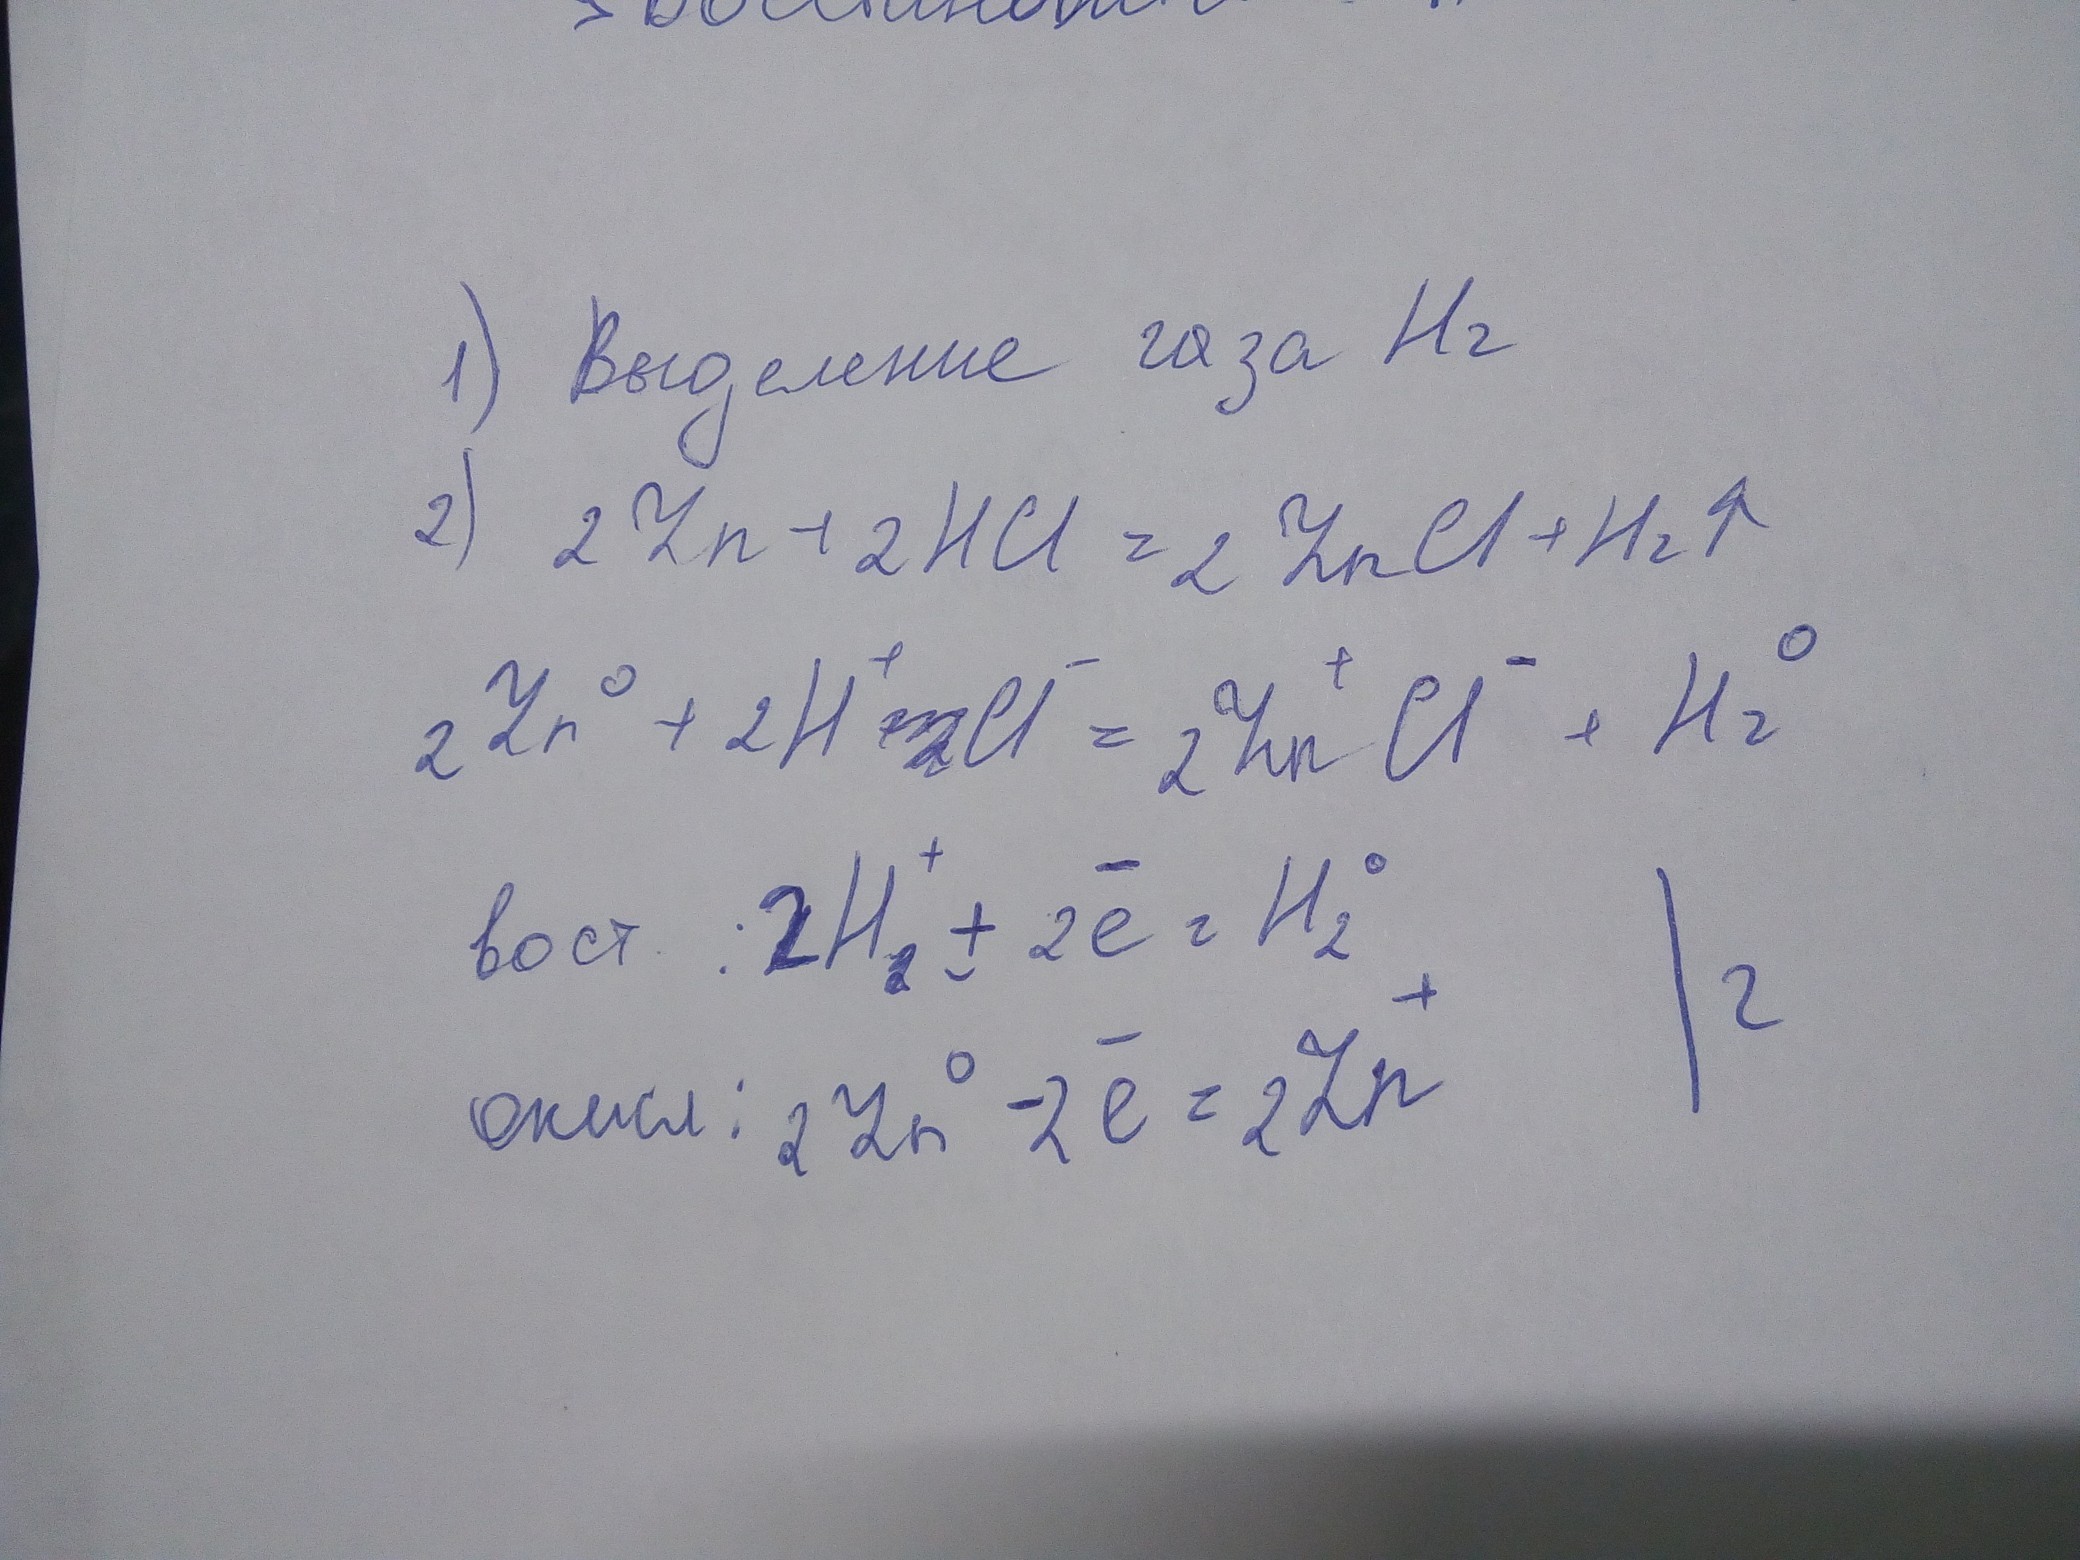 1) Выделение газа H₂
2) 2Zn + 2HCl = 2ZnCl + H₂↑
2Zn⁰ + 2H⁺Cl⁻ = 2Zn⁺Cl⁻ + H₂⁰
вост.: 2H₂⁺ + 2e̅ = H₂⁰
2
окисл: 2Zn⁰ - 2e̅ = 2Zn⁺